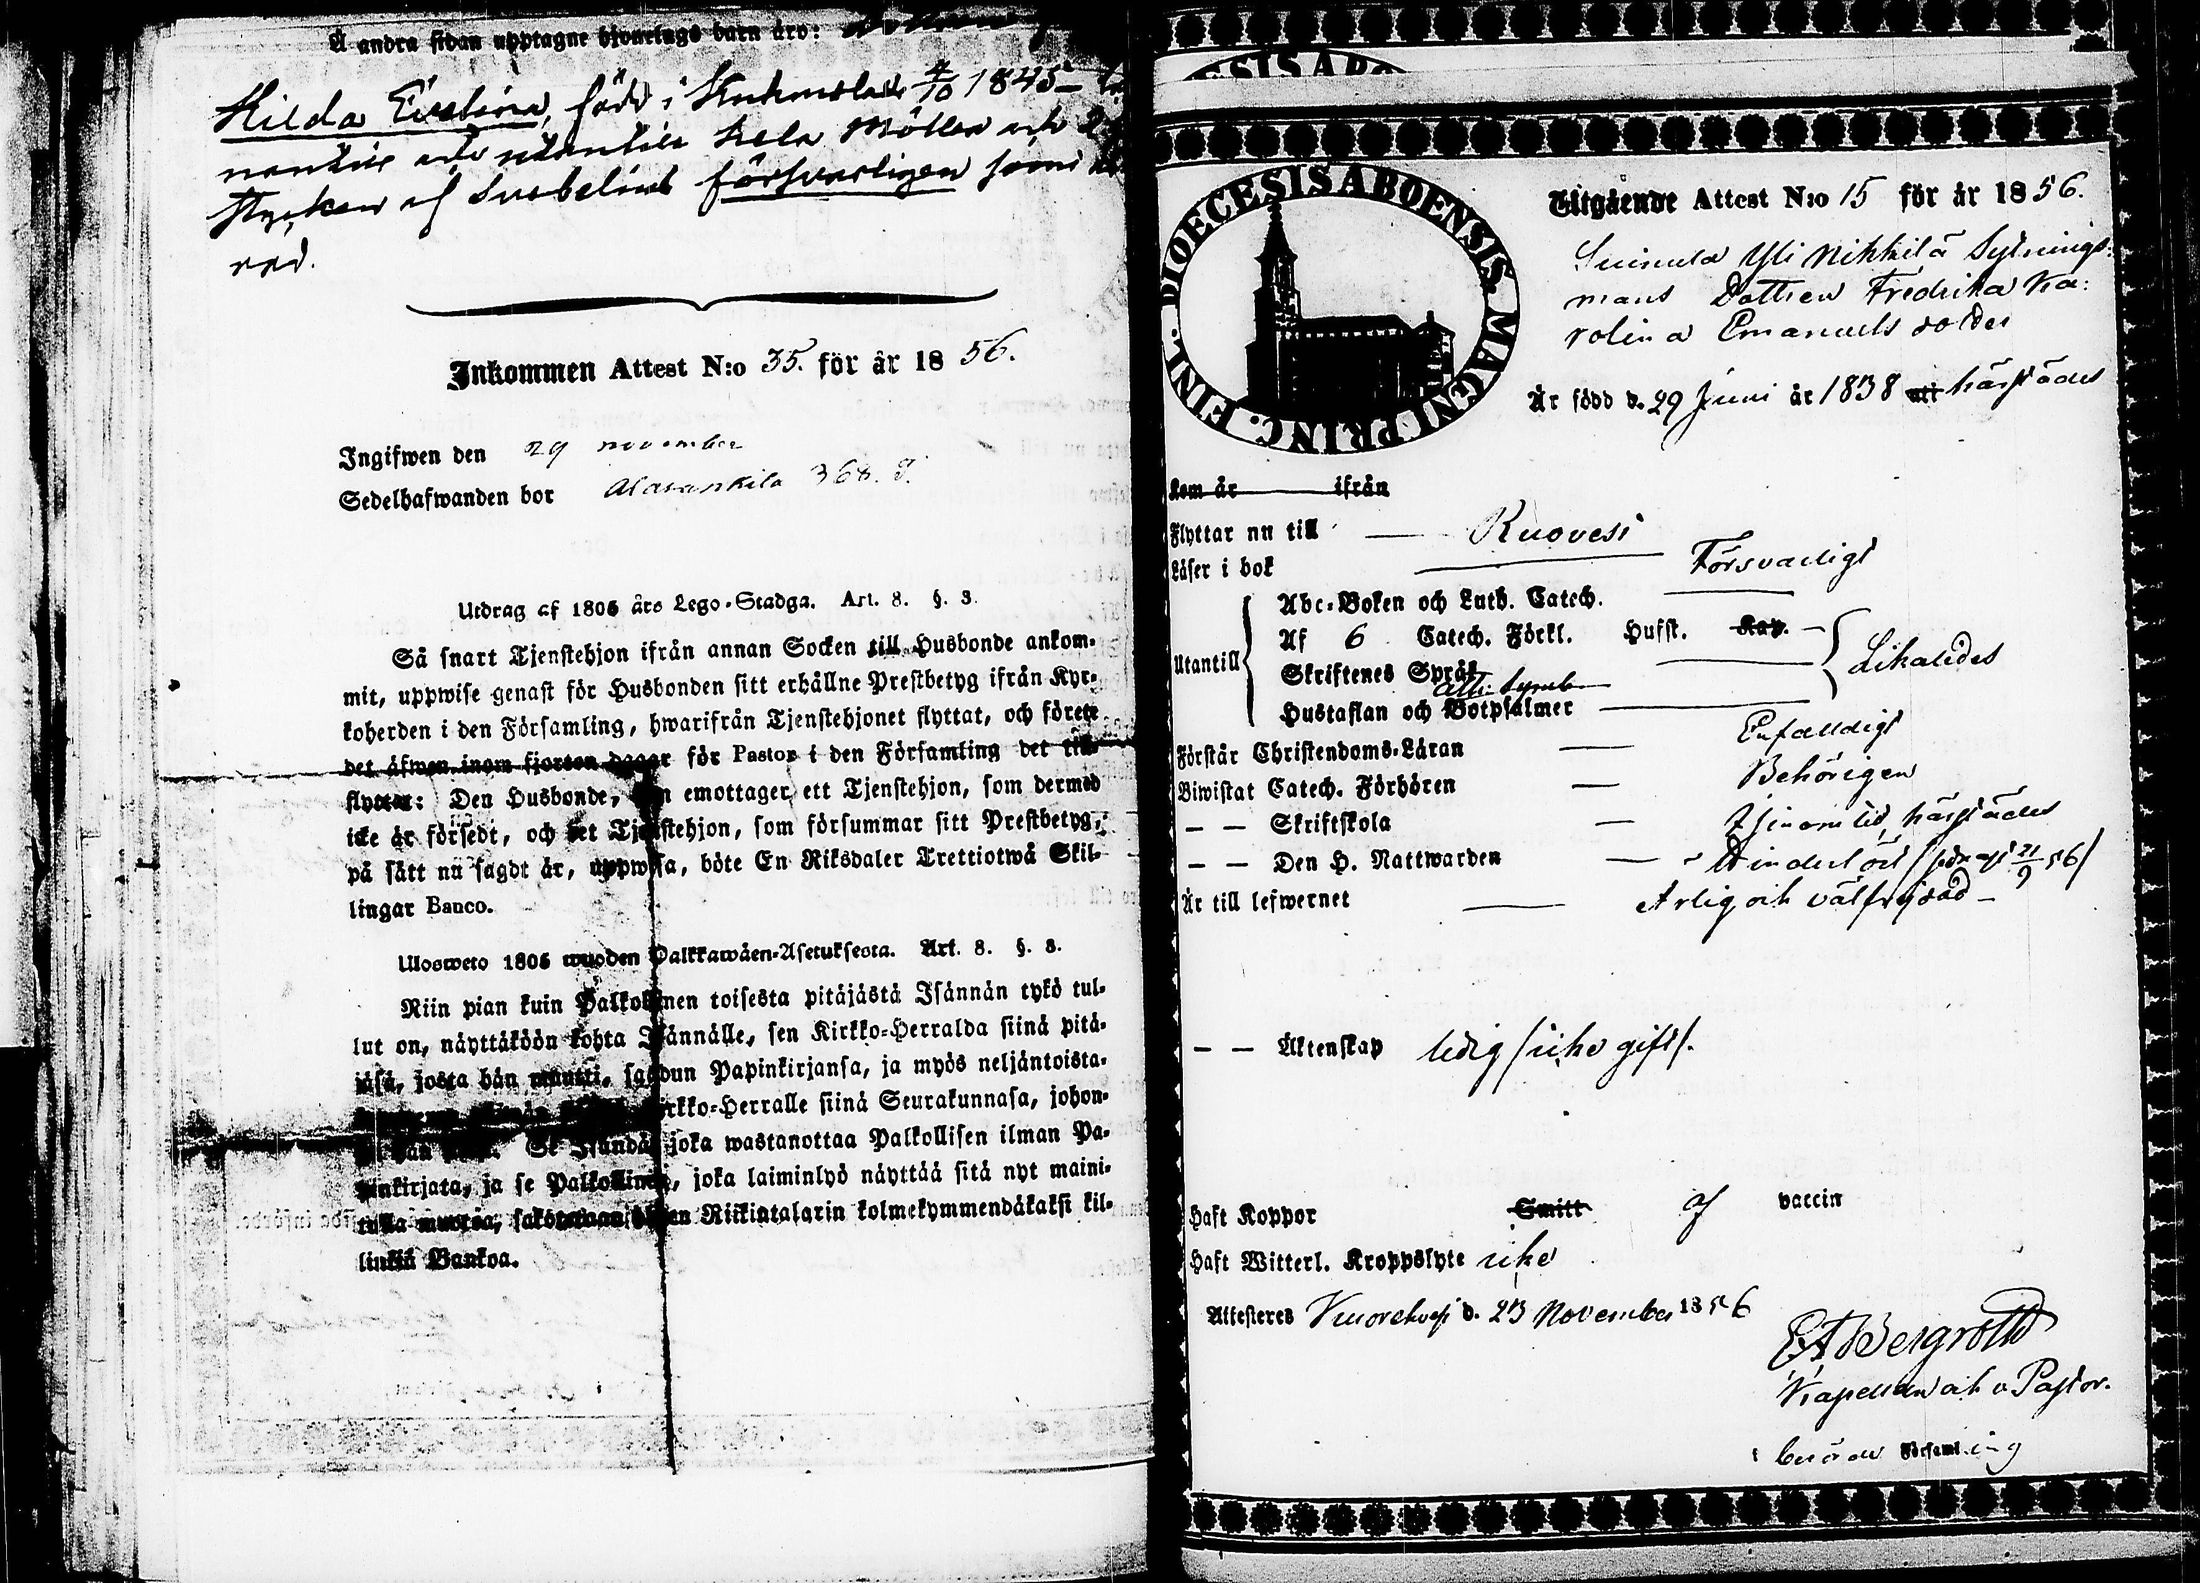 Å andra sidan upptagne hjonelags barn äro:
Hilda Evelina, född i 4/10 1845
nantill och utantill hela Möllers och
stycken af Svebelius försvarligen samt
rad.
Inkommen Attest N:o 35. för år 1856.
Ingifwen den 29 november
Sedelhafwanden bor Alarankila 368.
Utdrag af 1805 års Lego-Stadga. Art. 8. §. 3.
Så snart Tjenstehjon ifrån annan Socken till Husbonde ankom-
mit, uppwise genast för Husbonden sitt erhållne Prestbetyg ifrån Kyr-
koherden i den Församling, hwarifrån Tjenstehjonet flyttat, och förete
det äfwen inom fjorton dagar för Pastor i den Församling det till-
flyttat: Den Husbonde, som emottager ett Tjenstehjon, som dermed
icke är försedt, och det Tjenstehjon, som försummar sitt Prestbetyg,
på sätt nu sagdt är, uppwisa, böte En Riksdaler Trettiotwå Skil-
lingar Banco.
Ulosweto 1805 wuoden Palkkawäen-Asetuksesta. Art. 8. §. 3.
Niin pian kuin Palkollinen toisesta pitäjästä Isännän tykö tul-
lut on, näyttäköön kohta Isännälle, sen Kirkko-Herralda siinä pitä-
jäsä, josta hän muutti, saadun Papinkirjansa, ja myös neljäntoista-
Kirkko-Herralle siinä Seurakunnasa, johon-
hän Se Isändä joka wastanottaa Palkollisen ilman Pa-
pinkirjata, ja se Palkollinen, joka laiminlyö näyttää sitä nyt maini-
tulla muotoa, sakotetaan yhden Riikintalarin kolmekymmendäkaksi kil-
linkiä Bankoa.
DIOECESIS ABOENSIS MAGNI PRINC. FINL.
Utgående Attest N:o 15 för år 1856.
Suinula Yli Nikkilä Sytnings-
mans Dottren Fredrika Ka:
rolina Emanuels dotter
Är född d. 29 Juni år 1838 uti härstädes
Kom år ifrån
Flyttar nu till Ruovesi
Läser i bok Försvarligt
Abc-Boken och Luth. Catech.
Af 6 Catech. Förkl. Husst. Kap.
Utantill Skriftenes Språk Likaledes
Ath: Symb
Hustaflan och Botpsalmer
Förstår Christendoms-Läran Enfaldigt
Biwistat Catech. Förhören Behörigen
— — Skriftskola i sinom tid, härstädes
— — Den H. Nattwarden 21/9 56/
Är till lefwernet Ärlig och välfrejdad —
— — Äktenskap ledig /icke gift/.
Haft Koppor Smitt af vaccin
Haft Witterl. Kroppslyte icke
Attesteres Kuorehvesi d. 23 November 1856
EA Bergroth
Kapellan och v Pastor.
i berörde Församling